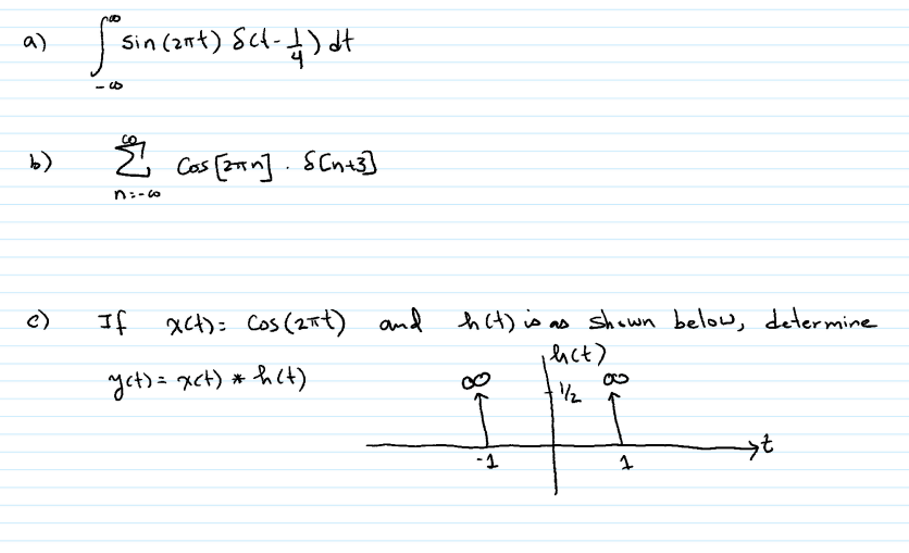 a) ∫_{-∞}^{∞} sin(2πt) δ(t-1/4) dt
b) ∑_{n=-∞}^{∞} Cos[2πn] . δ[n+3]
c) If x(t)= Cos(2πt) and h(t) is as shown below, determine
y(t)= x(t) * h(t)
h(t)
∞ 1/2 ∞
t
-1 1